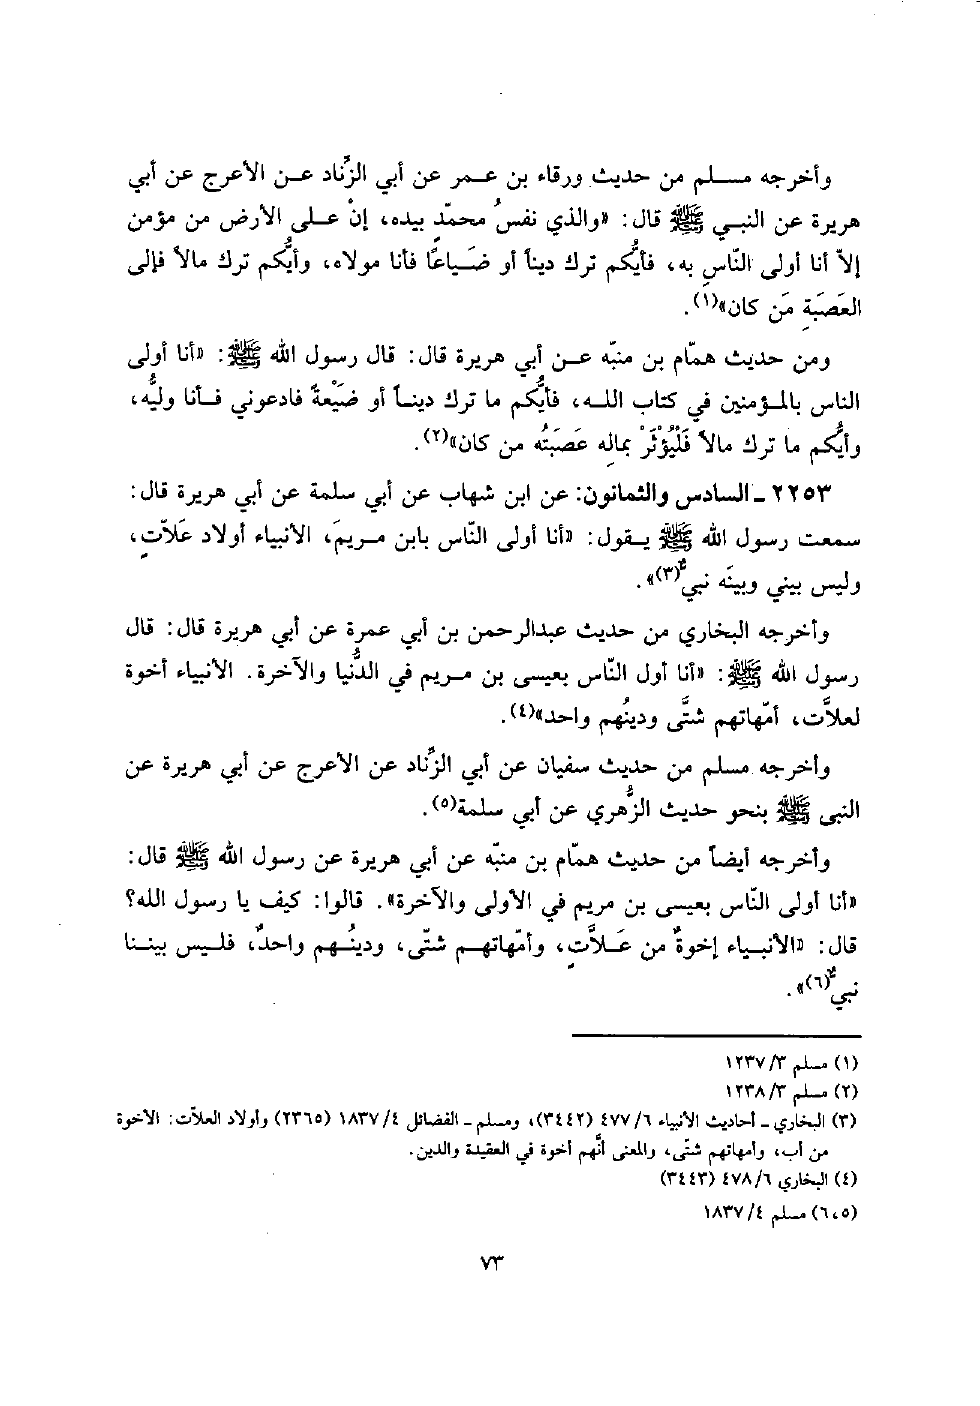 وأخرجه مسلم من حديث ورقاء بن عمر عن أبي الزِّناد عن الأعرج عن أبي
هريرة عن النبي ﷺ قال: «والذي نفسُ محمّدٍ بيده، إنْ على الأرض من مؤمن
إلاّ أنا أولى النّاسِ به، فأيُّكم ترك ديناً أو ضَياعًا فأنا مولاه، وأيُّكم ترك مالاً فإلى
العَصَبَةِ مَن كان»(١).
ومن حديث همّام بن منبّه عن أبي هريرة قال: قال رسول الله ﷺ: «أنا أولى
الناس بالمؤمنين في كتاب الله، فأيُّكم ما ترك ديناً أو ضَيْعةً فادعوني فأنا وليُّه،
وأيُّكم ما ترك مالاً فَلْيُؤْثَرْ بماله عَصَبَتُه من كان»(٢).
٢٢٥٣ ـ السادس والثمانون: عن ابن شهاب عن أبي سلمة عن أبي هريرة قال:
سمعت رسول الله ﷺ يقول: «أنا أولى النّاس بابن مريمَ، الأنبياء أولاد عَلاّتٍ،
وليس بيني وبينَه نبيٌّ(٣)».
وأخرجه البخاري من حديث عبدالرحمن بن أبي عمرة عن أبي هريرة قال: قال
رسول الله ﷺ: «أنا أول النّاس بعيسى بن مريم في الدُّنيا والآخرة. الأنبياء أخوة
لعلاَّت، أمّهاتهم شتَّى ودينُهم واحد»(٤).
وأخرجه مسلم من حديث سفيان عن أبي الزِّناد عن الأعرج عن أبي هريرة عن
النبي ﷺ بنحو حديث الزُّهري عن أبي سلمة(٥).
وأخرجه أيضاً من حديث همّام بن منبّه عن أبي هريرة عن رسول الله ﷺ قال:
«أنا أولى النّاس بعيسى بن مريم في الأولى والآخرة». قالوا: كيف يا رسول الله؟
قال: «الأنبياء إخوةٌ من عَلاَّتٍ، وأمّهاتهم شتّى، ودينُهم واحدٌ، فليس بيننا
نبيٌّ(٦)».
(١) مسلم ٣/١٢٣٧
(٢) مسلم ٣/١٢٣٨
(٣) البخاري ـ أحاديث الأنبياء ٦/٤٧٧ (٣٤٤٢)، ومسلم ـ الفضائل ٤/١٨٣٧ (٢٣٦٥) وأولاد العلاّت: الأخوة
من أب، وأمهاتهم شتّى، والمعنى أنَّهم أخوة في العقيدة والدين.
(٤) البخاري ٦/٤٧٨ (٣٤٤٣)
(٦،٥) مسلم ٤/١٨٣٧
٧٣